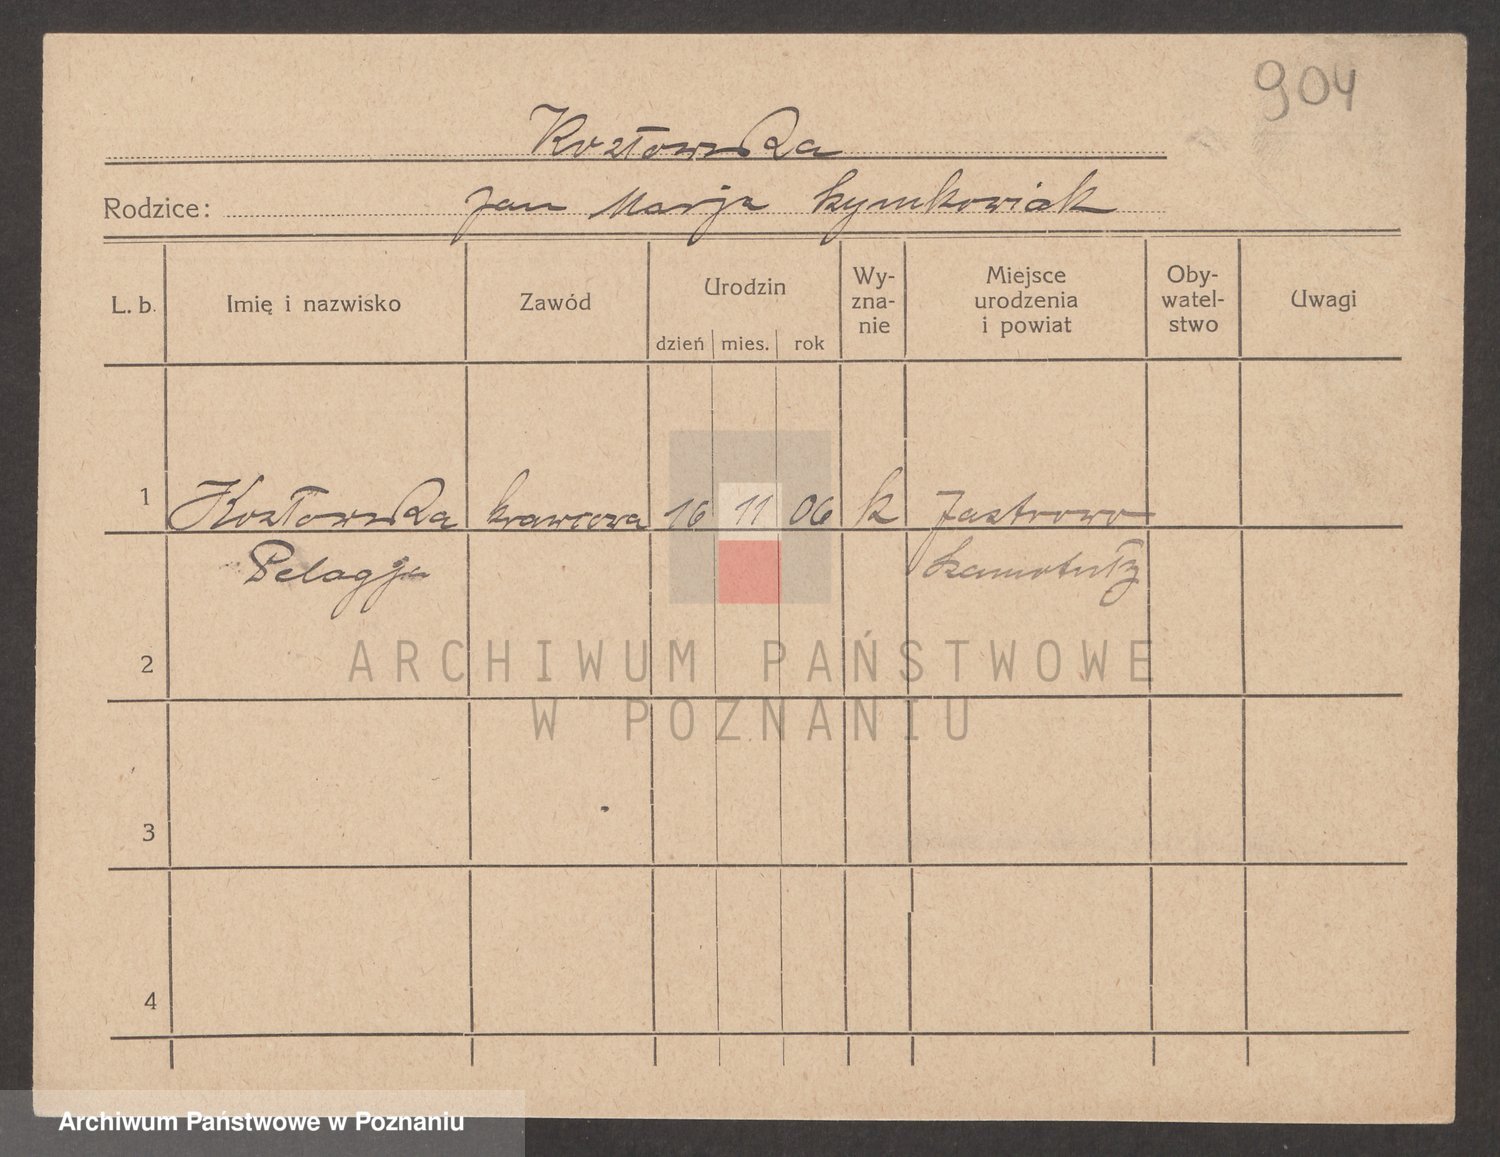 904
Kozłowska
Rodzice: Jan Marja Szymkowiak
L. b. Imię i nazwisko Zawód Urodzin dzień mies. rok Wy-zna-nie Miejsce urodzenia i powiat Oby-watel-stwo Uwagi
1 Kozłowska krawcowa 16 11 06 k Jastrowo
Pelagja Szamotuły
2
3
4
ARCHIWUM PAŃSTWOWE
W POZNANIU
Archiwum Państwowe w Poznaniu